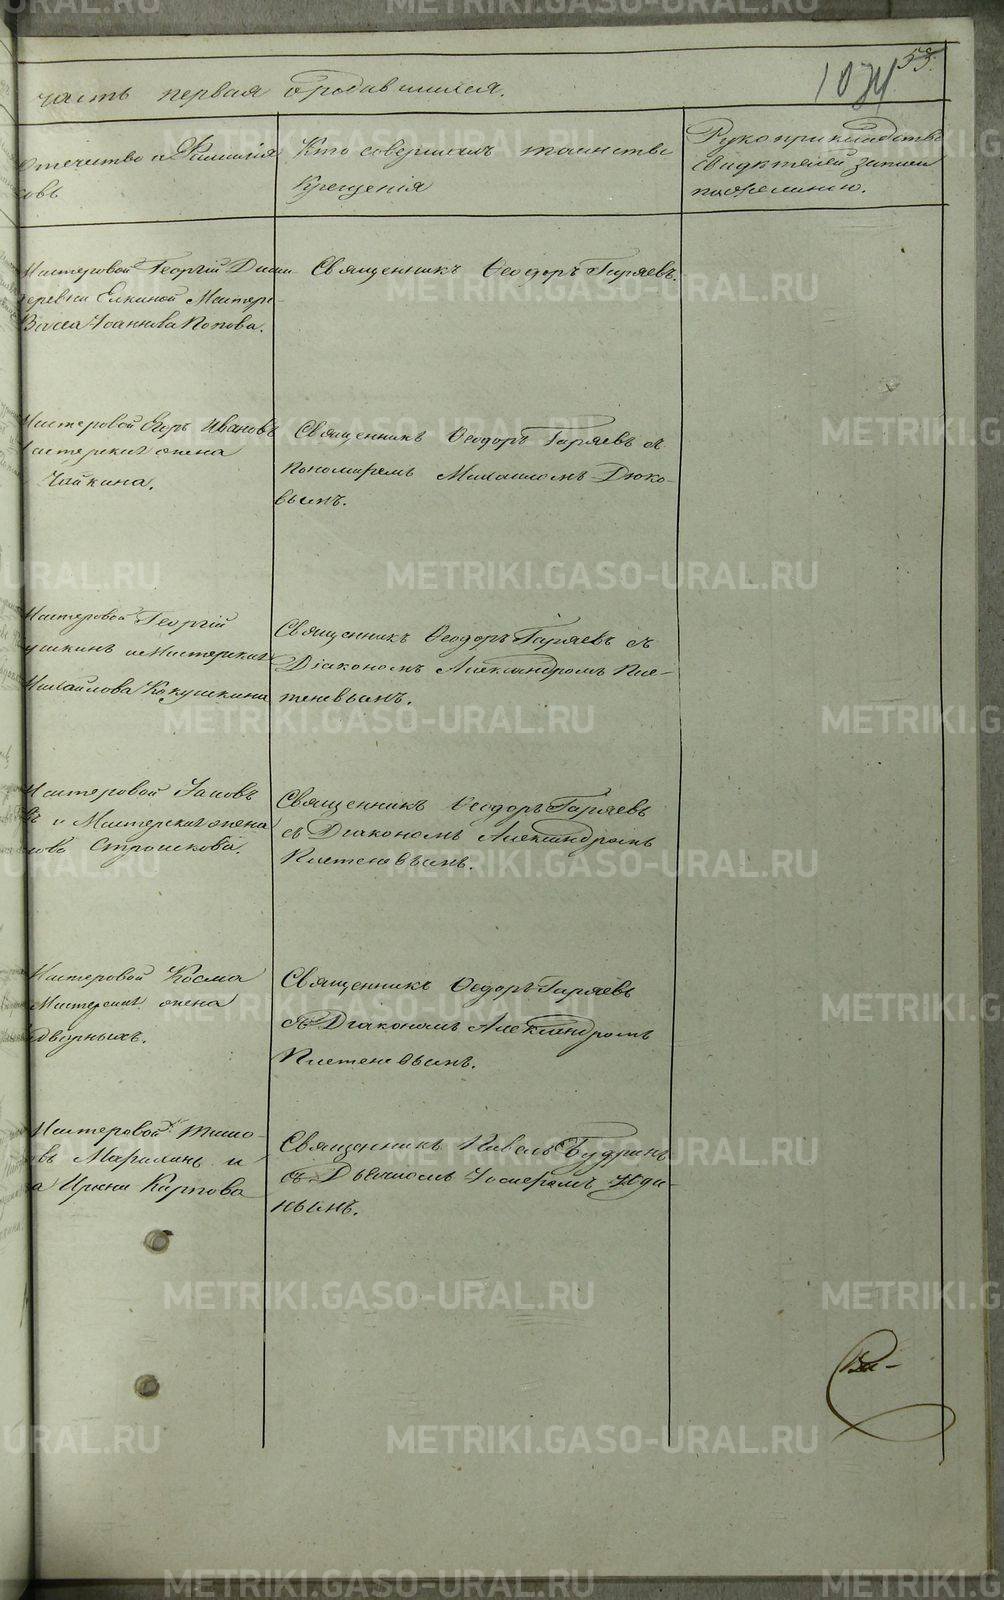 55.
1074
часть первая о родившихся.
Отечество и Фамилія
овъ
Кто совершалъ таинство
Крещенія
Рукоприкладство
свидѣтелей записи
по желанію.
Мастеровой Георгій
деревни Елкиной Мастер-
Васса Іоаннова Попова.
Священникъ Ѳеодоръ Гаряевъ.
Мастеровой Егоръ Ивановъ
Мастерскихъ жена
Чайкина.
Священникъ Ѳеодоръ Гаряевъ съ
Пономаремъ Михаиломъ Дюко-
вымъ.
Мастеровой Георгій
ушкинъ и Мастерскихъ
Михайлова Кокушкина
Священникъ Ѳеодоръ Гаряевъ съ
Діакономъ Александромъ Пле-
теневымъ.
Мастеровой Іаковъ
въ и Мастерскихъ жена
Строшкова.
Священникъ Ѳеодоръ Гаряевъ
съ Діакономъ Александромъ
Плетеневымъ.
Мастеровой Косма
Мастерскихъ жена
дворныхъ.
Священникъ Ѳеодоръ Гаряевъ
съ Діакономъ Александромъ
Плетеневымъ.
Мастеровой Тимо-
овъ и
а Ирина Карпова
Священникъ Павелъ Будринъ
съ Дьячкомъ Юди-
нымъ.
METRIKI.GASO-URAL.RU